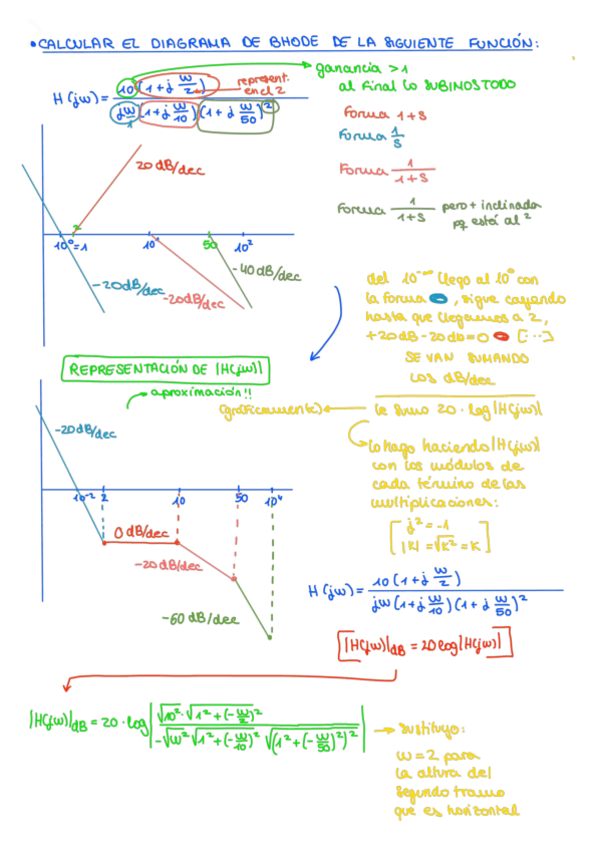 • CALCULAR EL DIAGRAMA DE BHODE DE LA SIGUIENTE FUNCIÓN:
H(jw) = 10 (1+j w/2) / jw (1+j w/10) (1+j w/50)²
represent. en el 2
1
ganancia >1
al final lo SUBIMOS TODO
Forma 1+s
Forma 1/s
Forma 1/(1+s)
Forma 1/(1+s) pero + inclinada
pq está al ²
20 dB/dec
2
10⁰=1
10¹
50
10²
-20dB/dec
-20dB/dec
-40dB/dec
del 10^-∞ llego al 10⁰ con
la forma , sigue cayendo
hasta que llegamos a 2,
+20dB-20db=0 [...]
SE VAN SUMANDO
LOS dB/dec
REPRESENTACIÓN DE |H(jw)|
aproximación!!
(gráficamente)
le sumo 20·log|H(jw)|
-20dB/dec
lo hago haciendo |H(jw)|
con los módulos de
cada término de las
multiplicaciones:
[ j² = -1
|K| = √K² = K ]
10⁻²
2
10
50
10⁴
0 dB/dec
-20dB/dec
-60 dB/dec
H(jw) = 10(1+j w/2) / jw(1+j w/10)(1+j w/50)²
|H(jw)|dB = 20log|H(jw)|
|H(jw)|dB = 20·log| √10² · √1²+(-w/2)² / -√w² √1²+(-w/10)² √(1²+(-w/50)²)² |
sustituyo:
w=2 para
la altura del
segundo tramo
que es horizontal